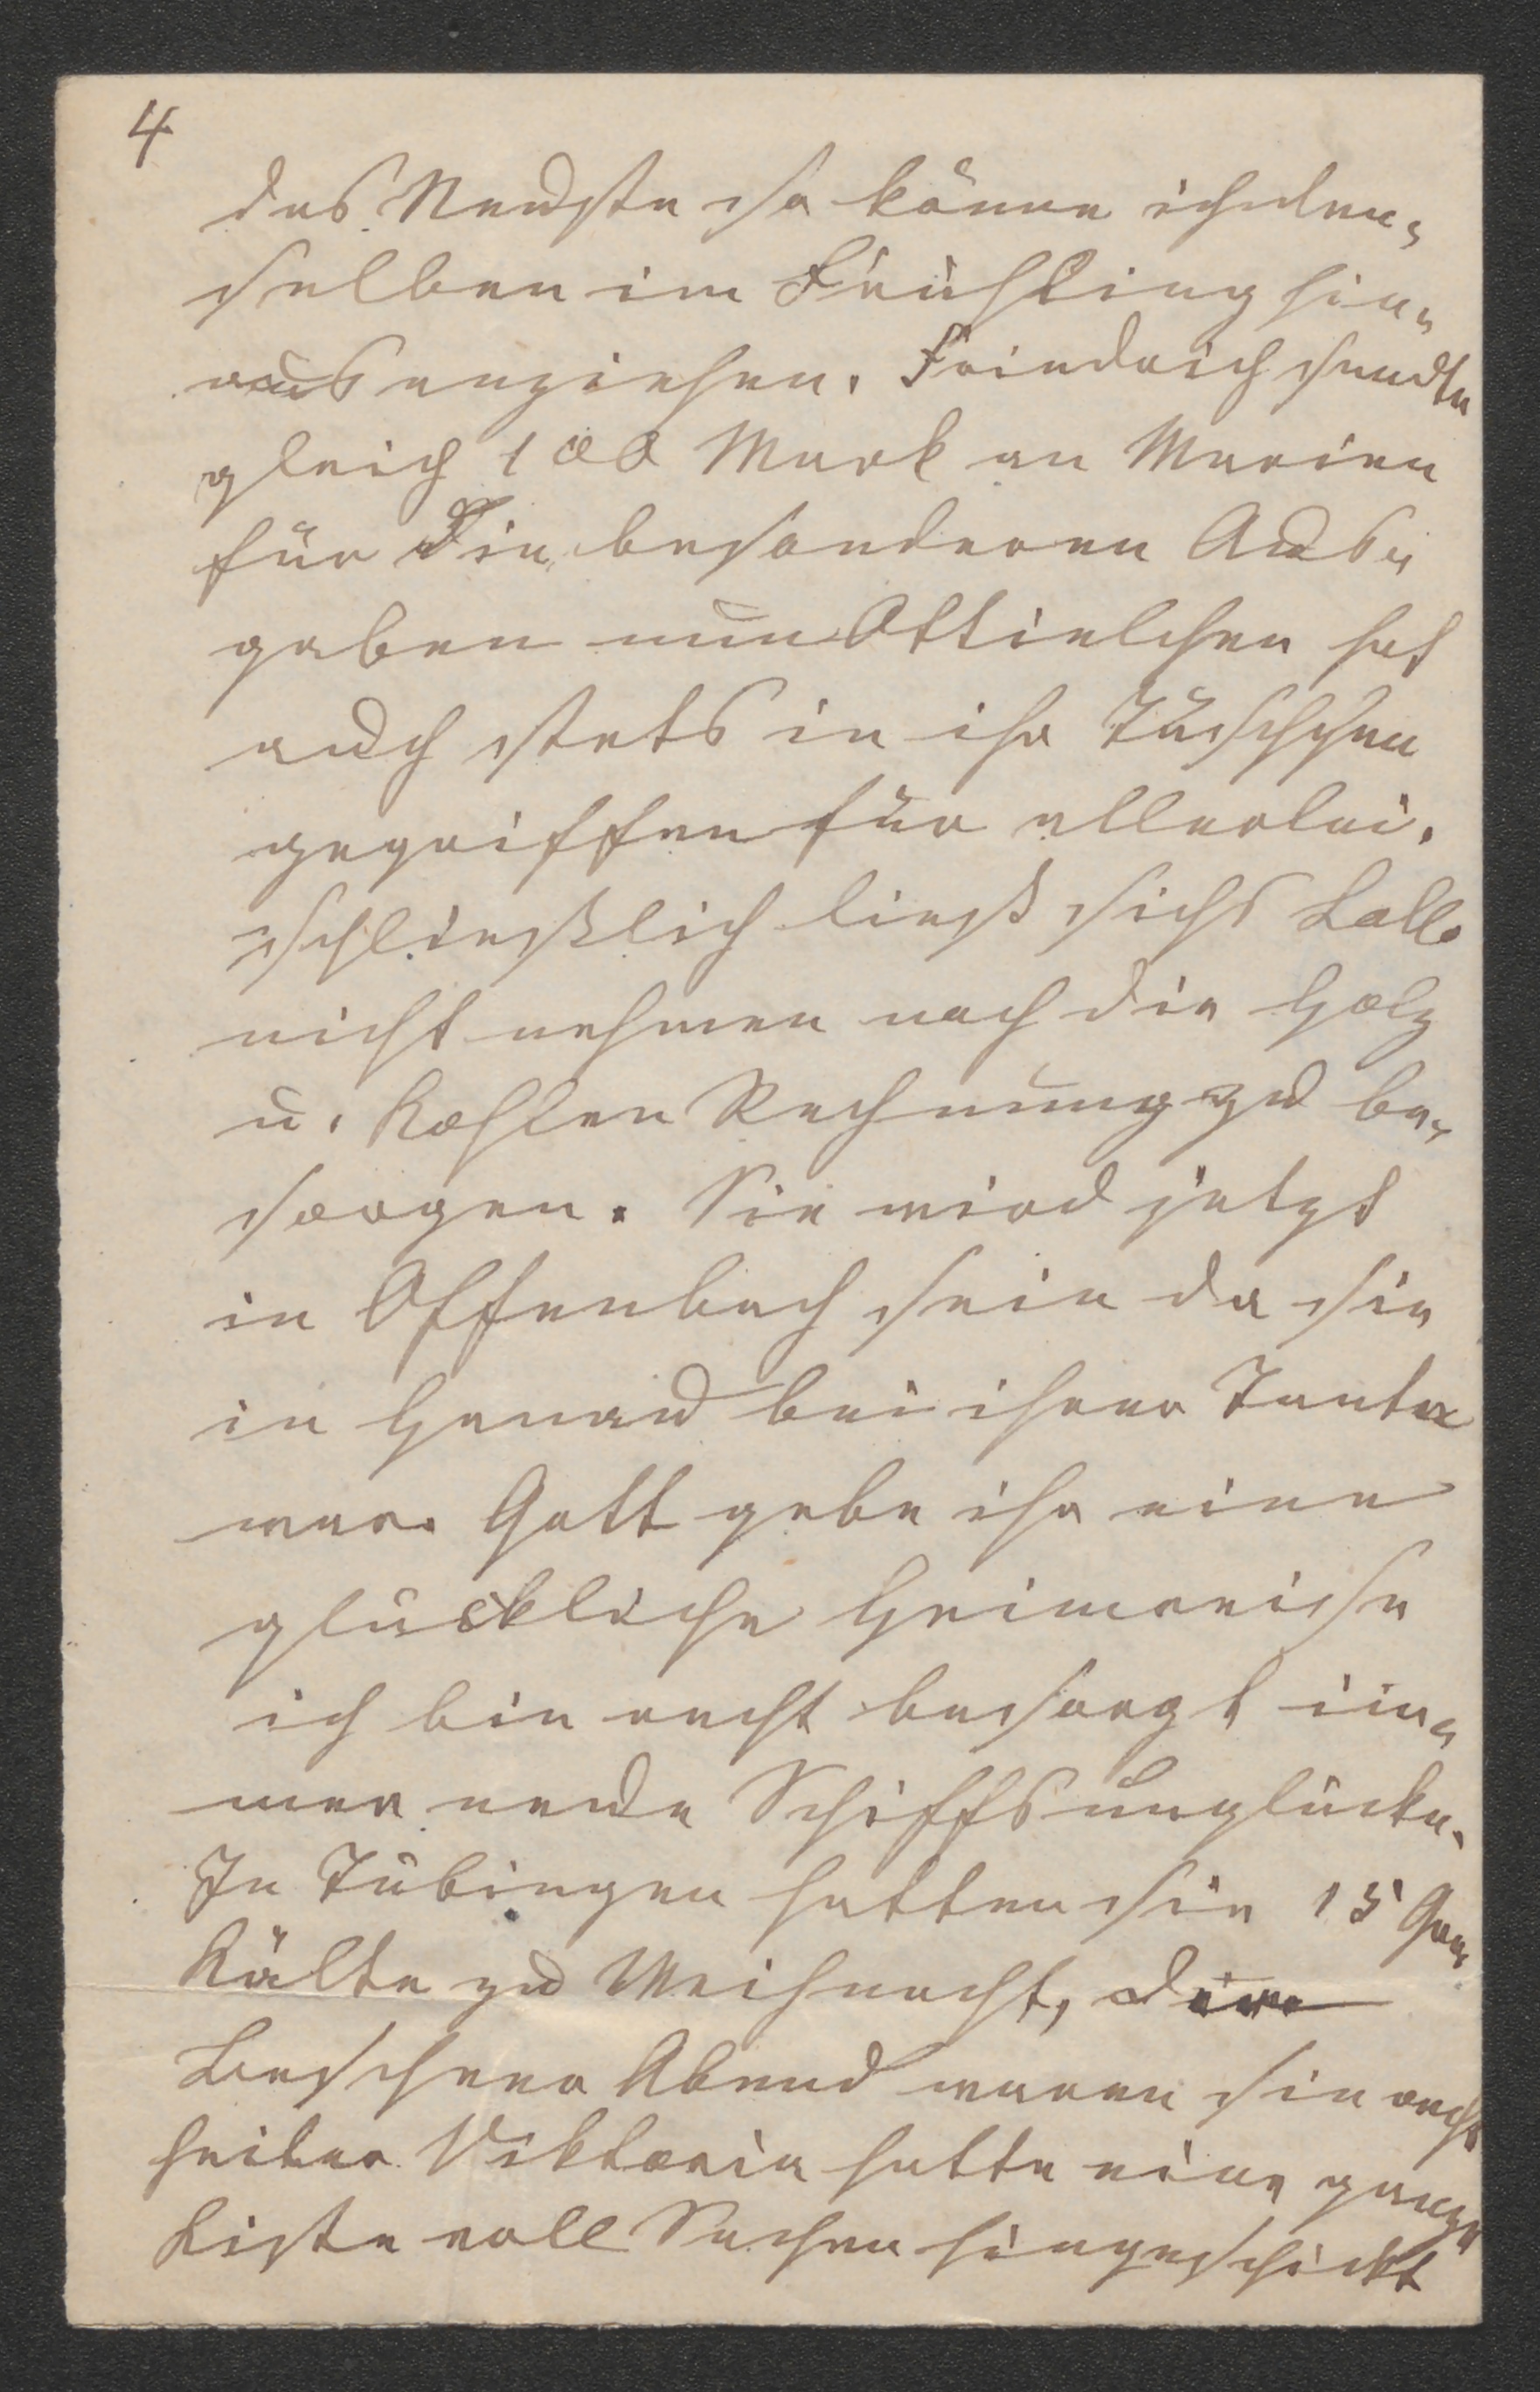 4
das Neuste so könne ich den„
selben im Frühling hin„
aus anziehen. Friedrich sandte
gleich 100 Mark an Marien
für die besonderen Aus„
gaben nun Ottielchen hat
auch stets in ihr Täschchen
gegriffen für allerlei.
schließlich ließ sichs Lalla
nicht nehmen noch die Holz
u. Kohlen Rechnung zu be„
sorgen. Sie wird jetzt
in Offenbach sein da sie
in Hanau bei ihrer Tante
war. Gott gebe ihr eine
glückliche Heimreise
ich bin recht besorgt im„
mer neue Schiffsunglücke.
In Tübingen hatten sie 15 Gra
Kälte zu Weihnacht,
Bescheer Abend waren sie recht
heiter Viktoria hatte eine ganze
Kiste voll Sachen hingeschickt